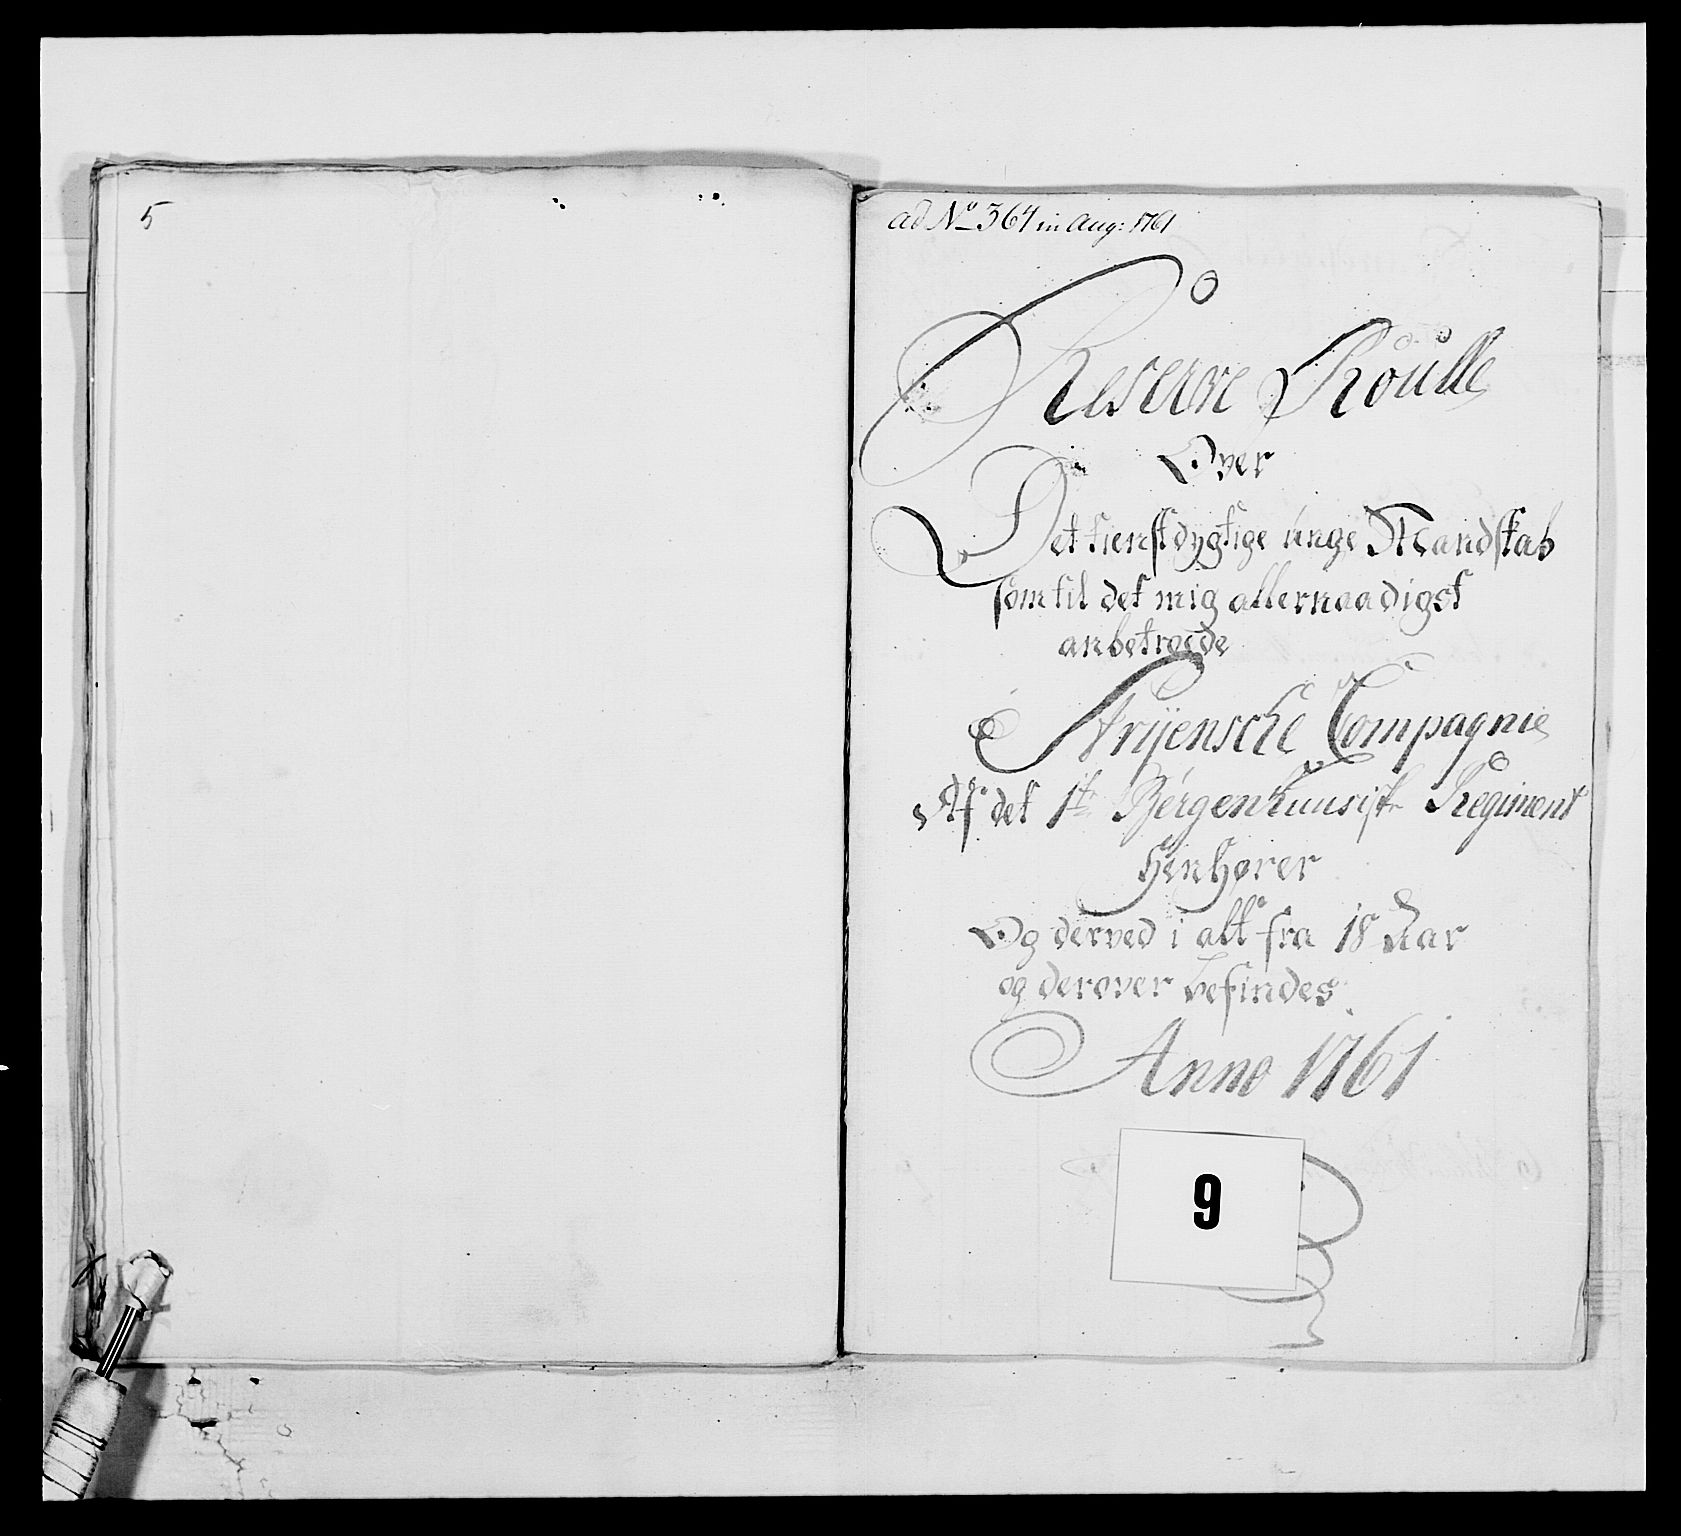 5
ad No 364 in Aug: 1761
Reserve Roulle
Over
Det tienstdygtige unge Mandskab
som til det mig allernaadigst
anbetroede
Stryensche Compagnie
Af det 1te Bergenhuusiske Regiment
henhører
Og derved i alt fra 18 Aar
og derover befindes
Anno 1761
9